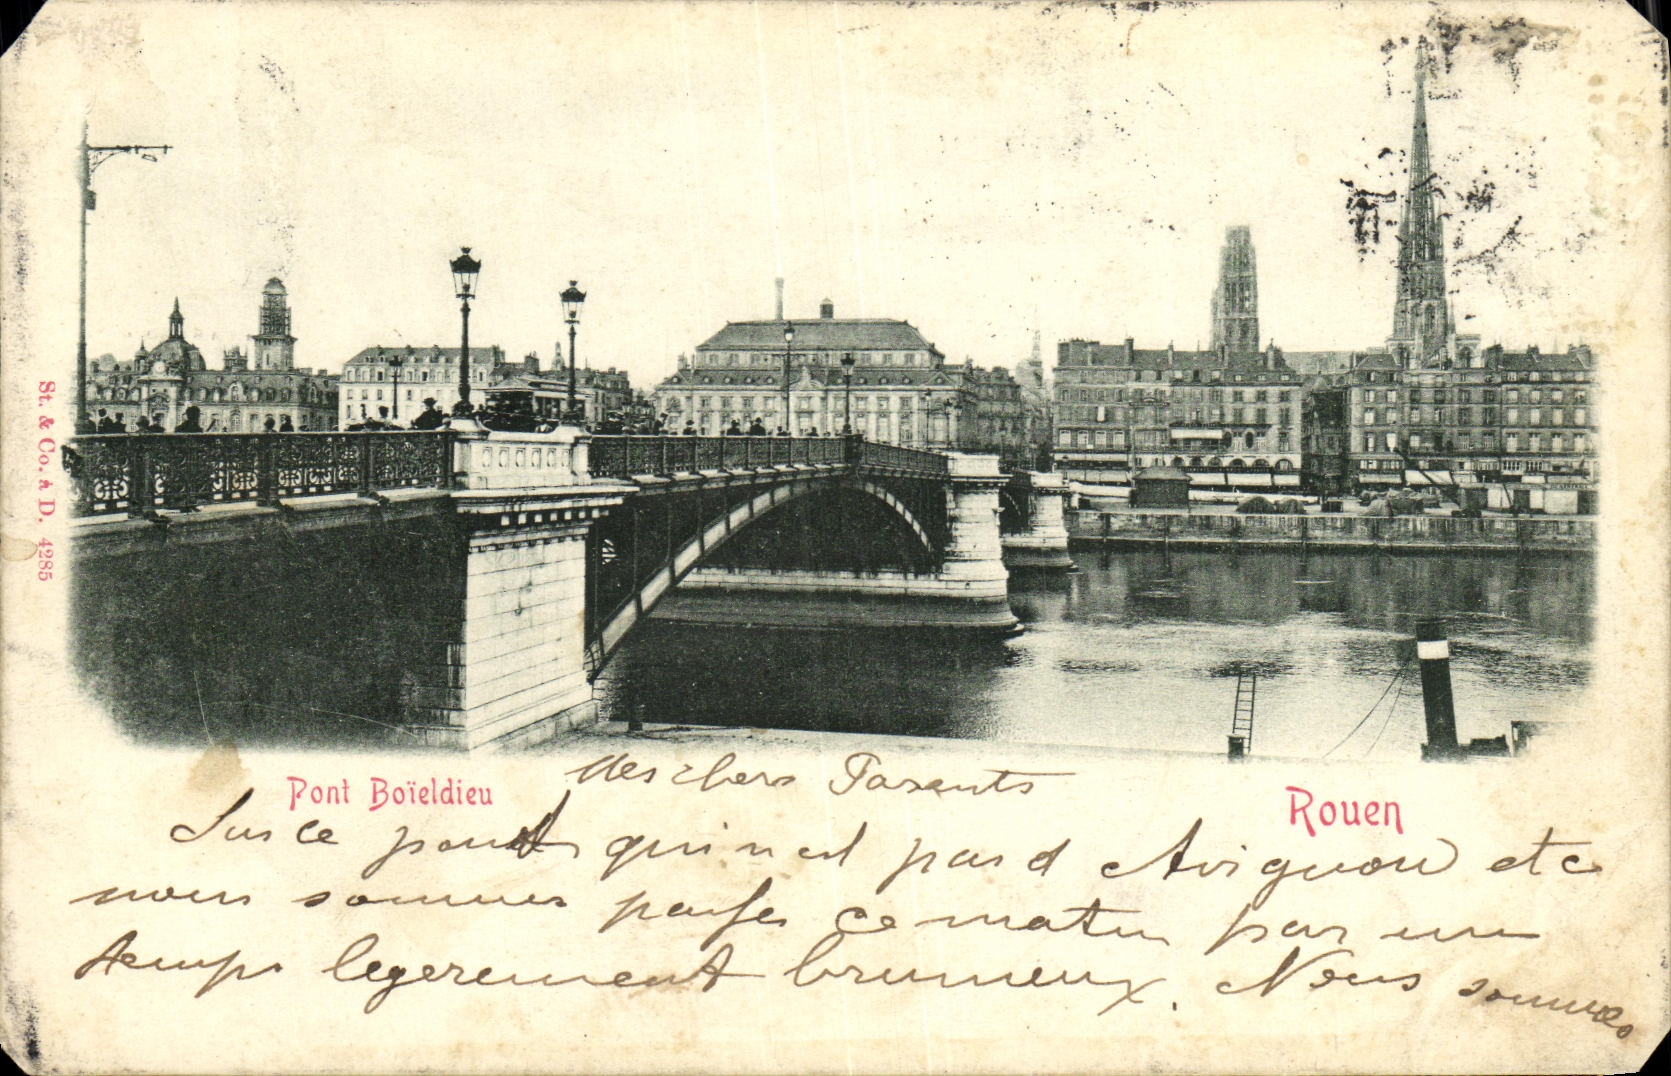 St. & Co. à D. 4285
Pont Boïeldieu
Rouen
Mes chers Parents
Sur ce pont qui n est pas d Avignon etc
nous sommes passes ce matin par un
temps legerement brumeux. Nous sommes